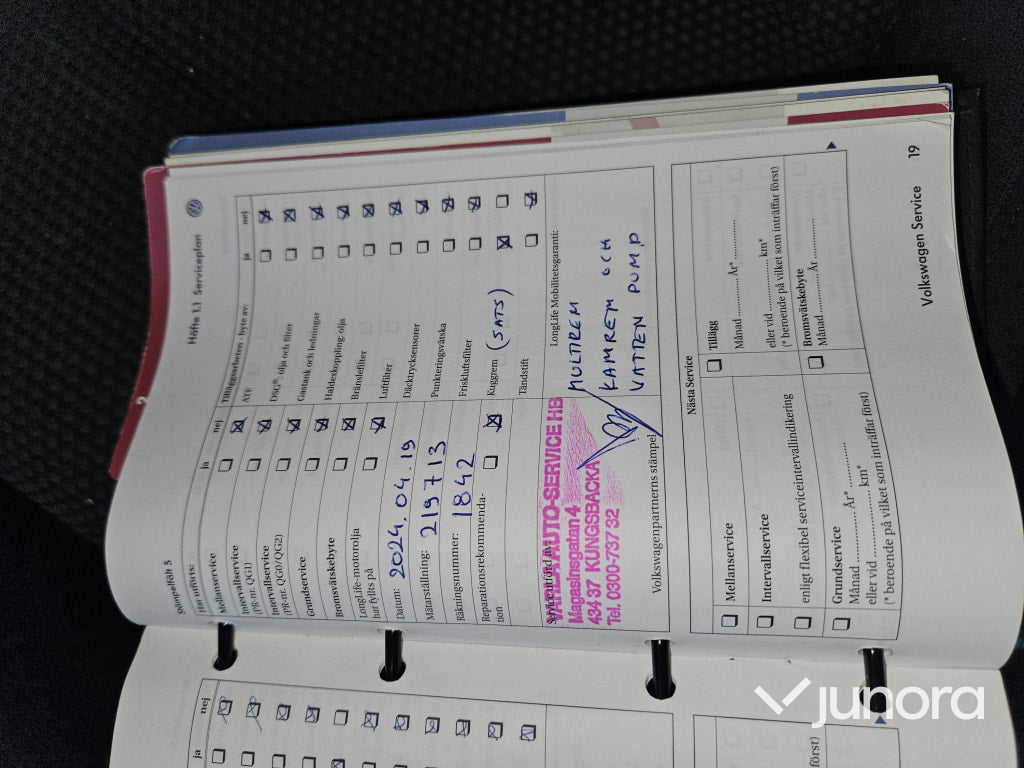 Häfte 1.1 Serviceplan
Stämpelfält 5
Har utförts:
ja nej
Mellanservice
Intervallservice
(PR-nr. QG1)
Intervallservice
(PR-nr. QG0/QG2)
Grundservice
Bromsvätskebyte
LongLife-motorolja
har fyllts på
Datum: 2024.04.19
Mätarställning: 219713
Räkningsnummer: 1842
Reparationsrekommenda-
tion
Tilläggsarbeten - byte av:
ja nej
ATF
DSG®, olja och filter
Gastank och ledningar
Haldexkoppling: olja
Bränslefilter
Luftfilter
Däcktrycksensorer
Punkteringsvätska
Friskluftsfilter
Kuggrem (SATS)
Tändstift
AUTO-SERVICE HB
Magasinsgatan 4
434 37 KUNGSBACKA
Tel. 0300-737 32
Volkswagenpartnerns stämpel
LongLife Mobilitetsgaranti:
MULTIREM
KAMREM OCH
VATTEN PUMP
Nästa Service
Mellanservice
Intervallservice
enligt flexibel serviceintervallindikering
Grundservice
Månad ............ År* ............
eller vid ............ km*
(* beroende på vilket som inträffar först)
Tillägg
Månad ............ År* ............
eller vid ............ km*
(* beroende på vilket som inträffar först)
Bromsvätskebyte
Månad ............ År ............
Volkswagen Service 19
2
ja nej
först)
junora